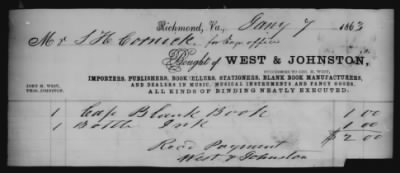 Richmond, Va., Jany 7 1863
Mr S. H. Cornick for Exp office
Bought of WEST & JOHNSTON,
SUCCESSORS TO GEO. M. WEST,
IMPORTERS, PUBLISHERS, BOOKSELLERS, STATIONERS, BLANK BOOK MANUFACTURERS,
AND DEALERS IN MUSIC, MUSICAL INSTRUMENTS AND FANCY GOODS.
JOHN M. WEST,
THOS. JOHNSTON.
ALL KINDS OF BINDING NEATLY EXECUTED.
1 Cap Blank Book 1 00
1 Bottle Ink 1 00
$2 00
Recd Payment
West & Johnston